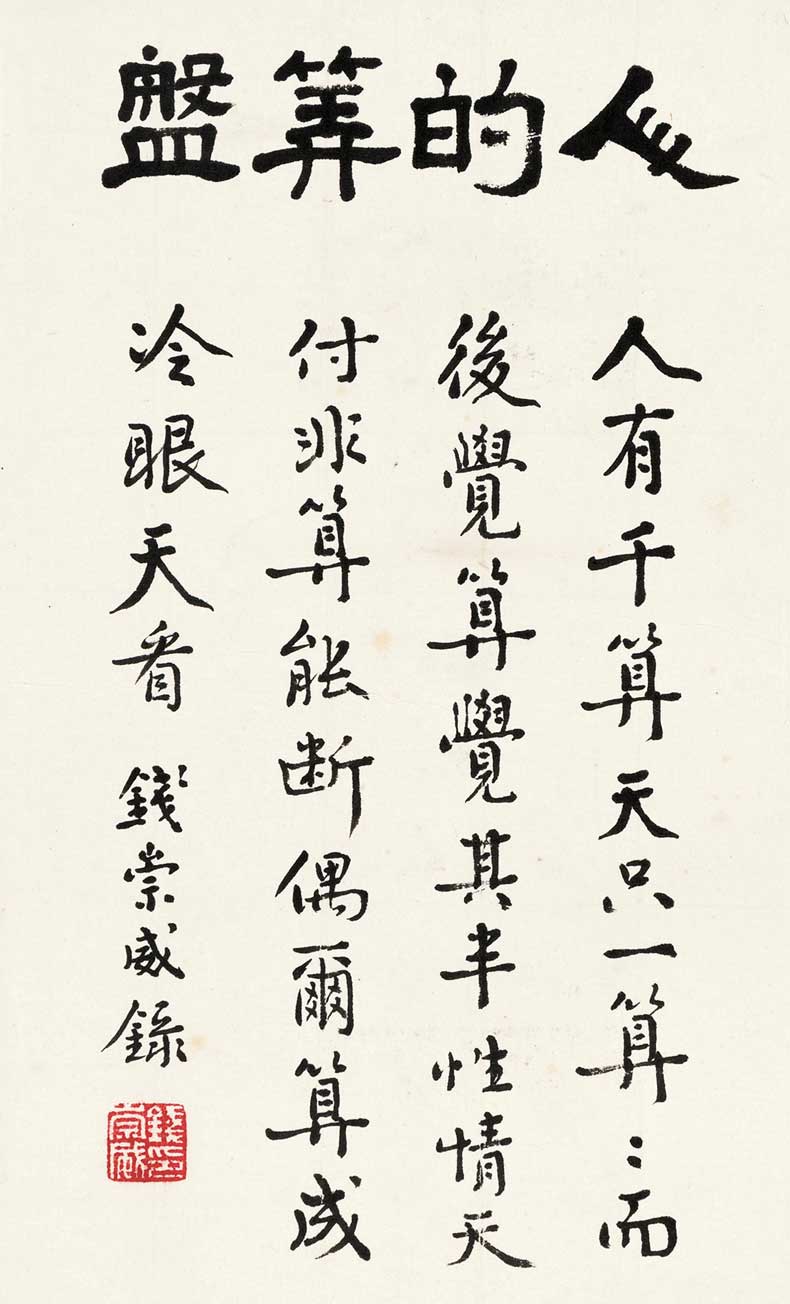 人的筭盤
人有千算天只一算〻而
後覺算覺其半性情天
付非算能断偶爾算成
冷眼天看 錢崇威錄
錢崇威印